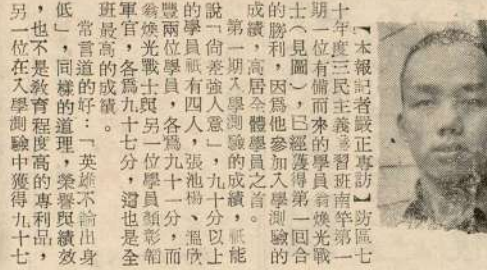 【本報記者嚴正專訪】防區七
十年度三民主義講習班南竿第一
期一位有備而來的學員翁煥光戰
士（見圖），已經獲得第一回合
的勝利，因爲他參加入學測驗的
成績，高居全體學員之首。
第一期入學測驗的成績，祇能
說「尙差強人意」，九十分以上
的學員祇有四人，張池楊、溫欣
豐兩位學員，各爲九十一分，而
翁煥光戰士與另一位學員顏彰韜
軍官，各爲九十七分，這也是全
班最高的成績。
常言道的好：「英雄不論出身
低」，同樣的道理，榮譽與績效
，也不是敎育程度高的專利品，
另一位在入學測驗中獲得九十七